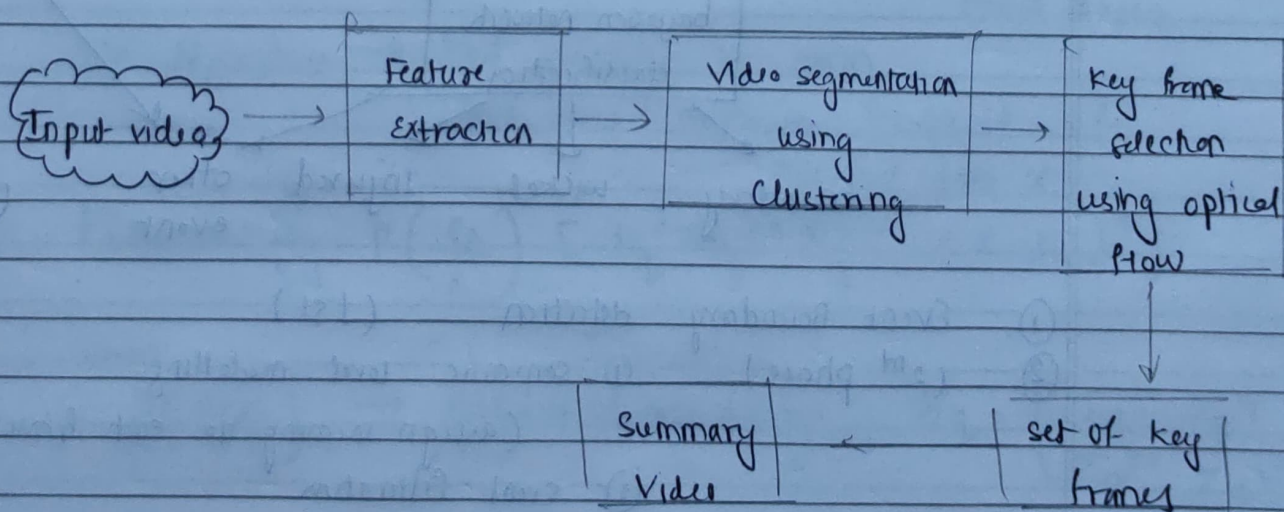 Input video
Feature
Extraction
Video segmentation
using
Clustering
Key frame
selection
using optical
flow
set of key
frames
Summary
Video